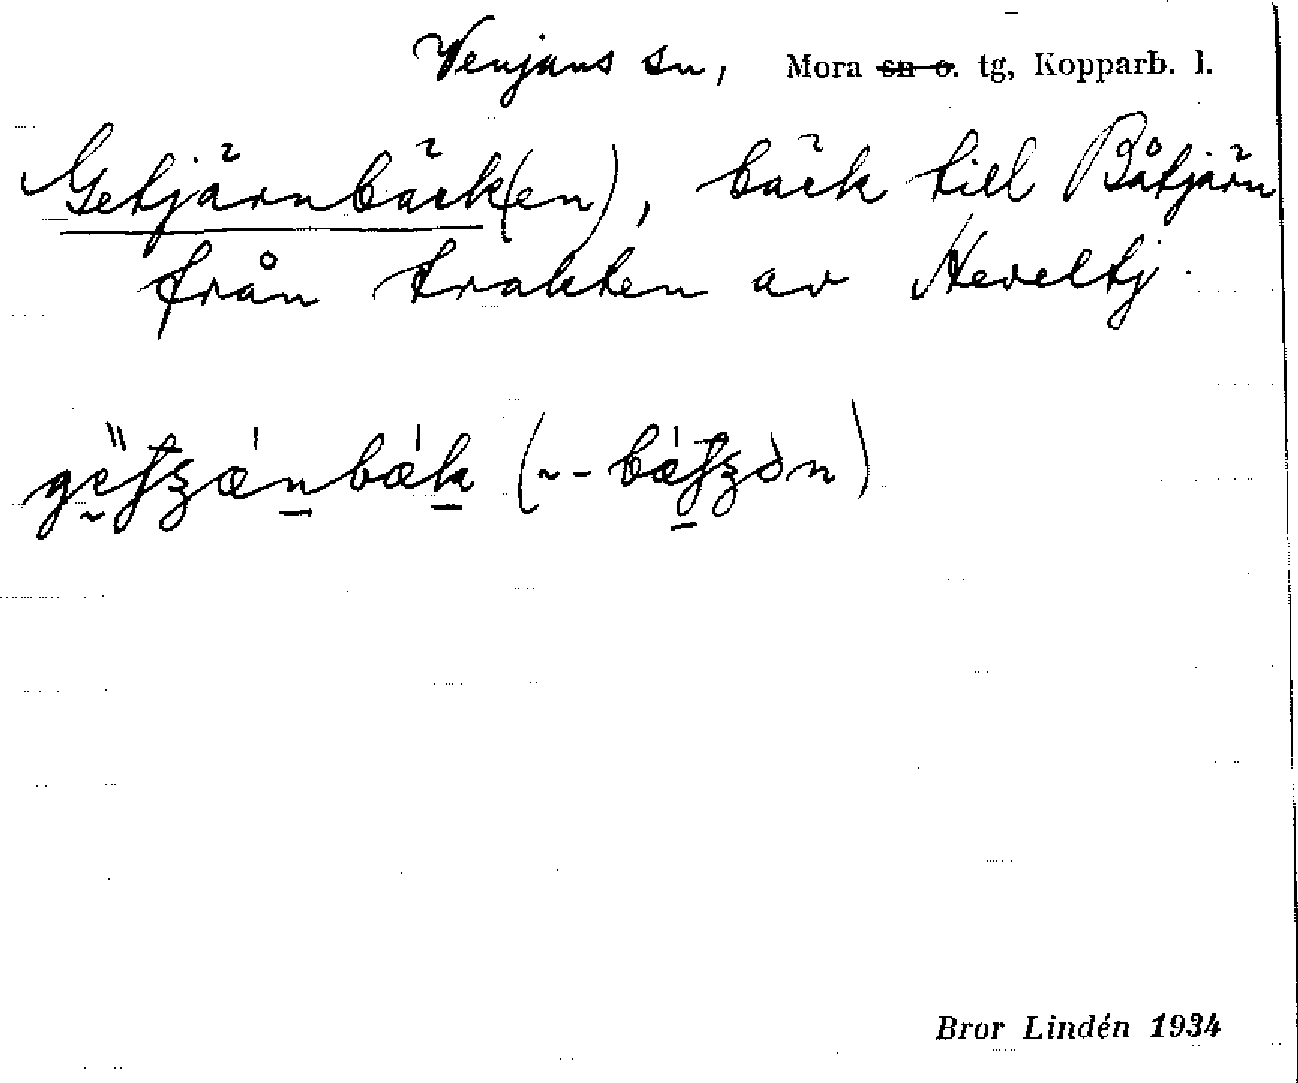 Venjans sn, Mora ~~sn o.~~ tg, Kopparb. l.
Getjärnbäck(en), bäck till Båtjärn
från trakten av Heveltj.
Bror Lindén 1934